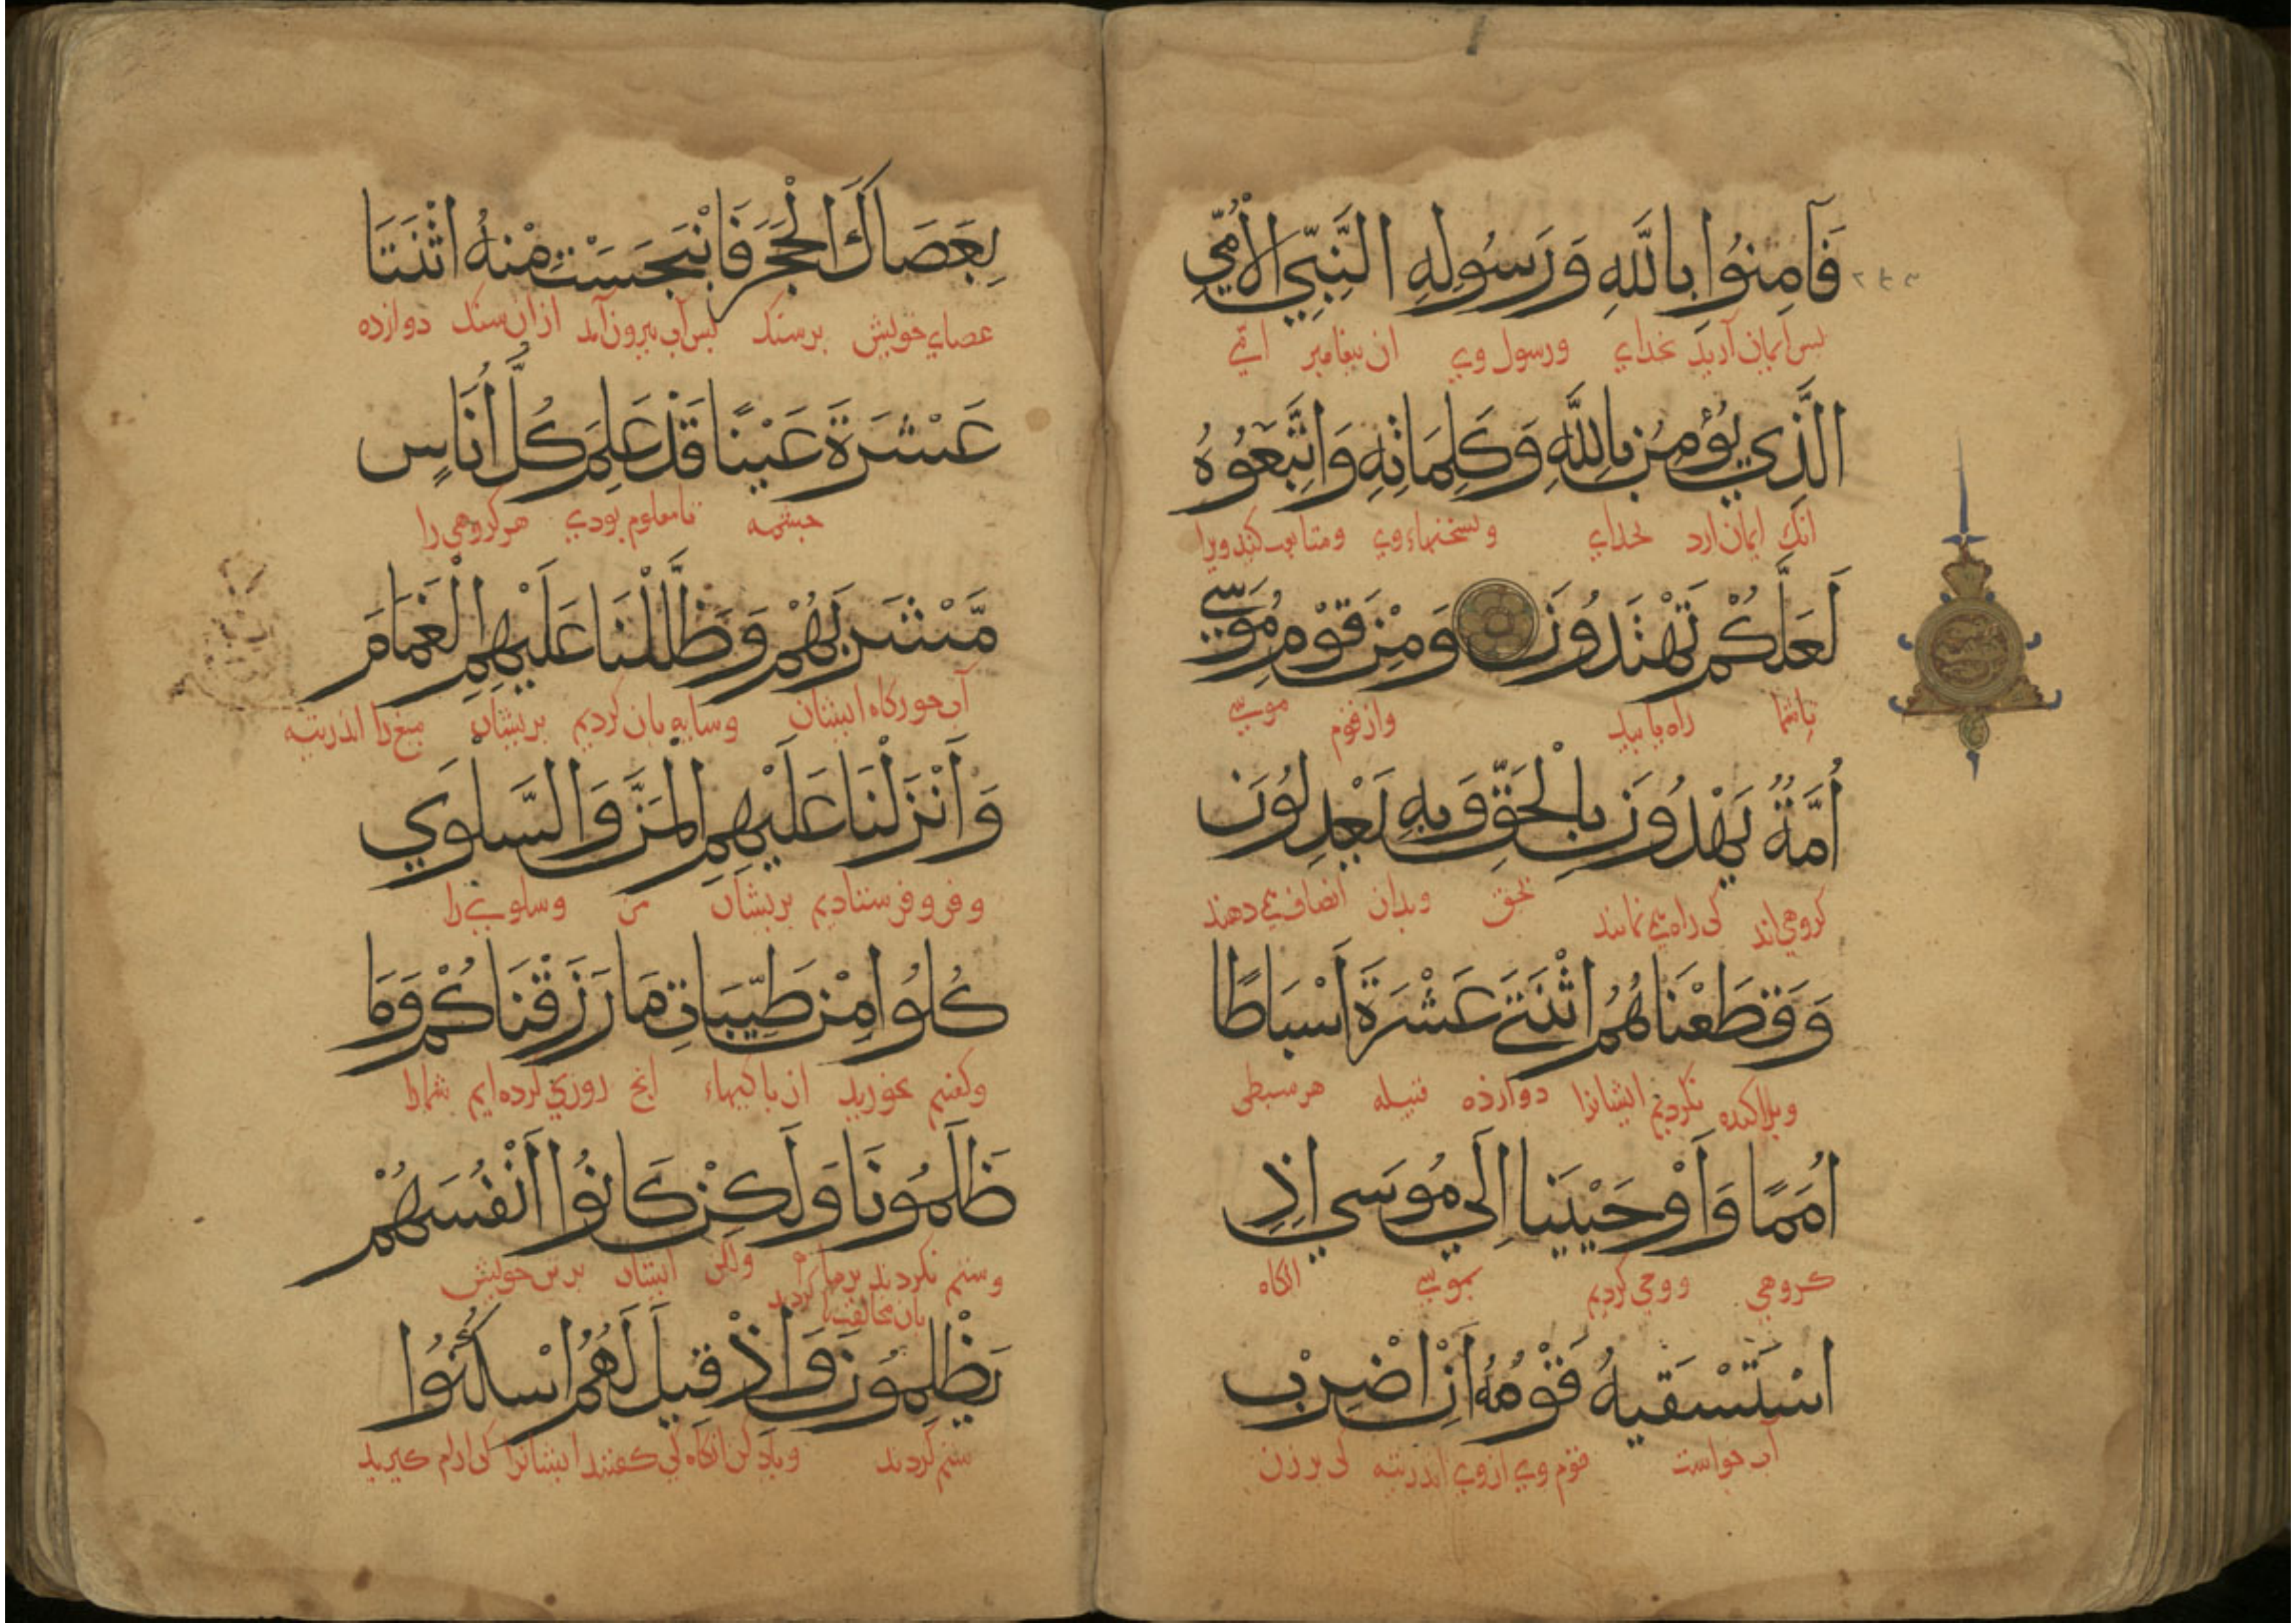 فَآمِنُوا بِاللَّهِ وَرَسُولِهِ النَّبِيِّ الْأُمِّيِّ
بس ایمان آرید بخدای ورسول وی ان بیغامبر امّی
الَّذِي يُؤْمِنُ بِاللَّهِ وَكَلِمَاتِهِ وَاتَّبِعُوهُ
انک ایمان ارد بخدای وسخنهاء وی ومتابعت کنید ویرا
لَعَلَّكُمْ تَهْتَدُونَ وَمِنْ قَوْمِ مُوسَي
تا شما راه یابید واز قوم موسی
أُمَّةٌ يَهْدُونَ بِالْحَقِّ وَبِهِ يَعْدِلُونَ
کروهی اند کی راه می نمایند بحق وبدان انصاف می دهند
وَقَطَّعْنَاهُمُ اثْنَتَيْ عَشْرَةَ أَسْبَاطًا
وبراکنده بکردیم ایشانرا دوازده قبیله هر سبطی
أُمَمًا وَأَوْحَيْنَا إِلَي مُوسَي إِذِ
کروهی ووحی کردیم بموسی انکاه
اسْتَسْقَيهُ قَوْمُهُ أَنِ اضْرِبْ
آب خواست قوم وی از وی اندر تیه کی بر زن
بِعَصَاكَ الْحَجَرَ فَانْبَجَسَتْ مِنْهُ اثْنَتَا
عصای خویش بر سنک بس آب بیرون آمد از ان سنک دوازده
عَشْرَةَ عَيْنًا قَدْ عَلِمَ كُلُّ أُنَاسٍ
جشمه تا معلوم بودی هر کروهی را
مَّشْرَبَهُمْ وَظَلَّلْنَا عَلَيْهِمِ الْغَمَامَ
آب خورکاه ایشان وسایه بان کردیم بریشان میغ را اندر تیه
وَأَنْزَلْنَا عَلَيْهِمِ الْمَنَّ وَالسَّلْوَي
وفرو فرستادیم بریشان من وسلوی را
كُلُوا مِنْ طَيِّبَاتِ مَا رَزَقْنَاكُمْ وَمَا
وکفتیم بخورید از باکیهاء انج روزی کرده ایم شمارا
ظَلَمُونَا وَلَكِنْ كَانُوا أَنْفُسَهُمْ
وستم نکردند بر ما ولکن ایشان بر تن خویش
بان مخالفت کردند
يَظْلِمُونَ وَإِذْ قِيلَ لَهُمُ اسْكُنُوا
ستم کردند ویاد کن انکاه کی کفتند ایشانرا کی ارام کیرید